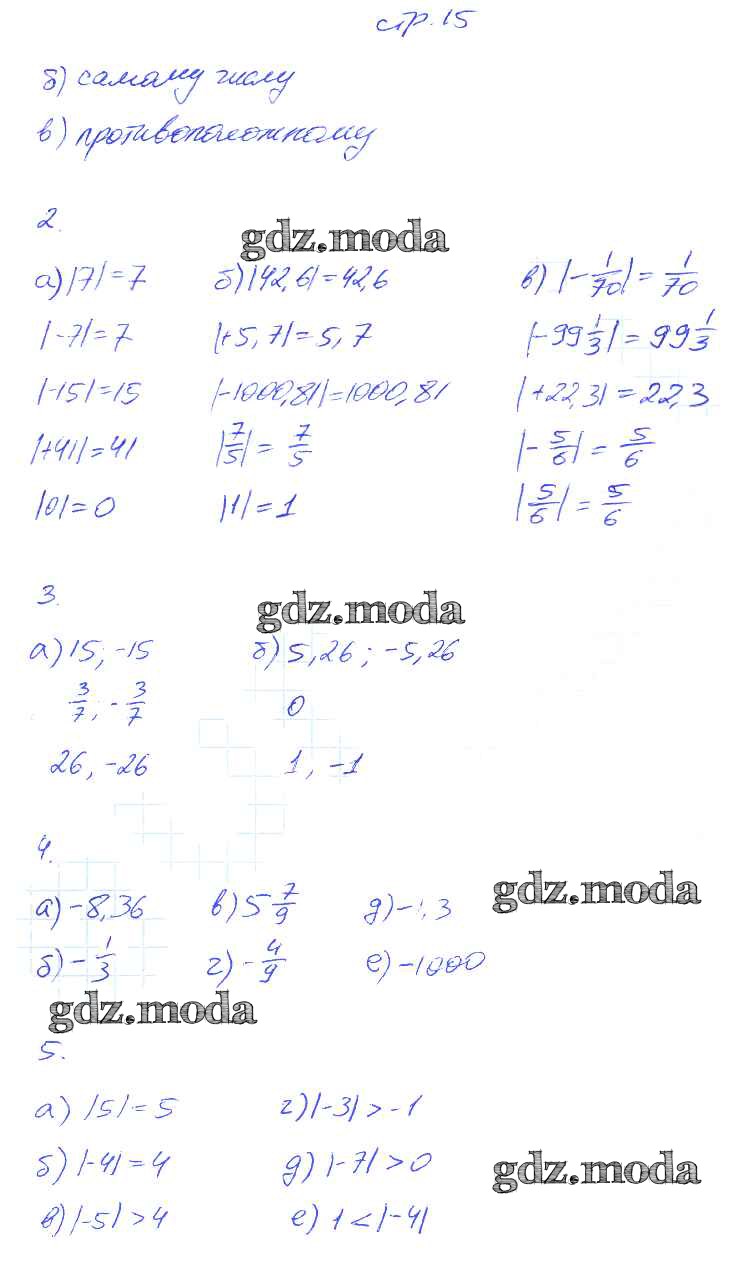 стр. 15
б) самому числу
в) противоположному
2.
gdz.moda
а) |7| = 7 б) |42,6| = 42,6 в) |-1/70| = 1/70
|-7| = 7 |+5,7| = 5,7 |-99 1/3| = 99 1/3
|-15| = 15 |-1000,81| = 1000,81 |+22,3| = 22,3
|+41| = 41 |7/5| = 7/5 |-5/6| = 5/6
|0| = 0 |1| = 1 |5/6| = 5/6
3.
gdz.moda
а) 15, -15 б) 5,26 ; -5,26
3/7, -3/7 0
26, -26 1, -1
4.
gdz.moda
а) -8,36 в) 5 7/9 д)
б) -1/3 г) -4/9 е) -1000
gdz.moda
5.
а) |5| = 5 г) |-3| > -1
б) |-4| = 4 д) |-7| > 0
gdz.moda
в) |-5| > 4 е) 1 < |-4|